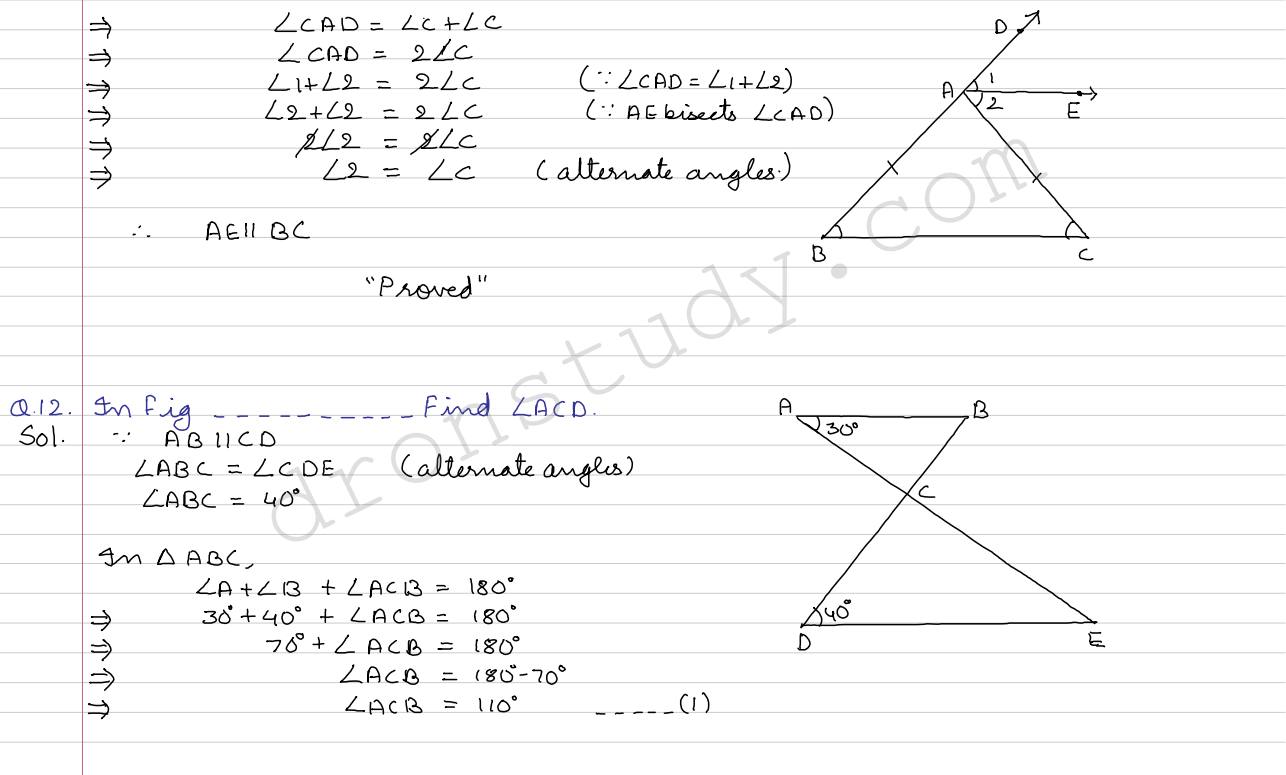 ⇒ ∠CAD = ∠C + ∠C
⇒ ∠CAD = 2∠C
⇒ ∠1+∠2 = 2∠C (∵ ∠CAD = ∠1+∠2)
⇒ ∠2+∠2 = 2∠C (∵ AE bisects ∠CAD)
⇒ 2∠2 = 2∠C
⇒ ∠2 = ∠C (alternate angles.)
∴ AE || BC
"Proved"
D
A 1
2
E
B C
dronstudy.com
Q.12. In Fig __________ Find ∠ACD.
Sol. ∵ AB || CD
∠ABC = ∠CDE (alternate angles)
∠ABC = 40°
In △ABC,
∠A+∠B + ∠ACB = 180°
⇒ 30°+40° + ∠ACB = 180°
⇒ 70° + ∠ACB = 180°
⇒ ∠ACB = 180°-70°
⇒ ∠ACB = 110° _____(1)
A B
30°
C
40°
D E